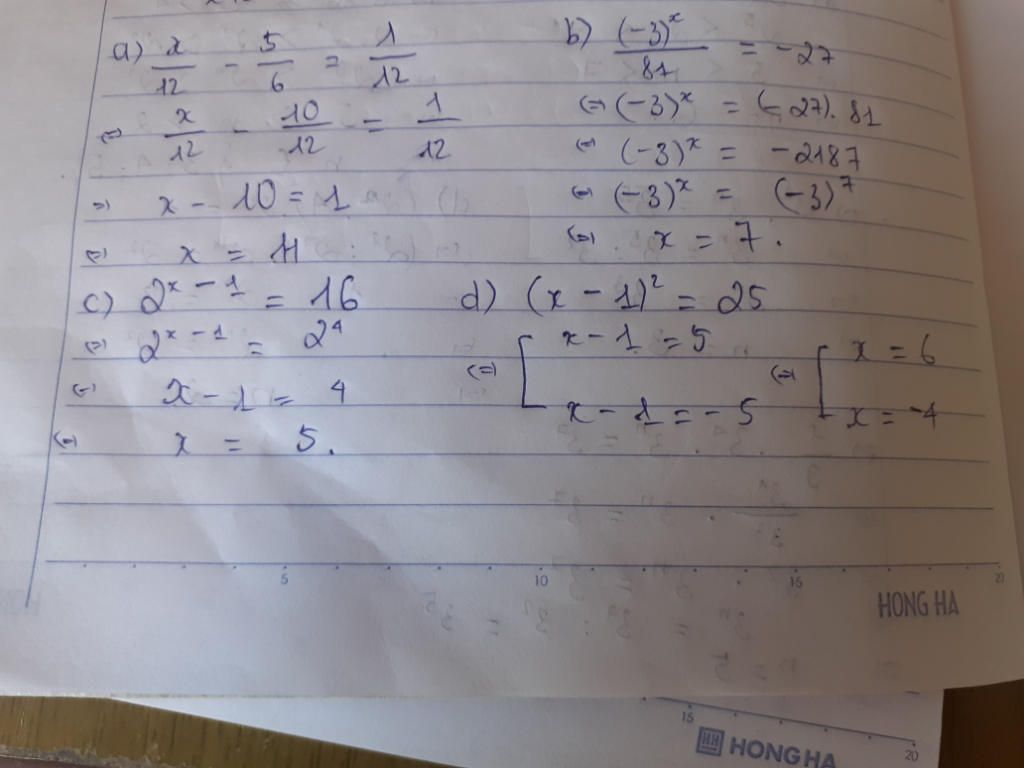 a) x/12 - 5/6 = 1/12
⇔ x/12 - 10/12 = 1/12
⇒ x - 10 = 1
⇔ x = 11
b) (-3)^x/81 = -27
⇔ (-3)^x = (-27). 81
⇔ (-3)^x = -2187
⇔ (-3)^x = (-3)^7
⇔ x = 7.
c) 2^x - 1 = 16
⇔ 2^x - 1 = 2^4
⇔ x - 1 = 4
⇔ x = 5.
d) (x - 1)^2 = 25
⇔ [ x - 1 = 5 ⇔ [ x = 6
x - 1 = - 5 x = -4
5 10 15 20
HONG HA
15 20
HH HONG HA